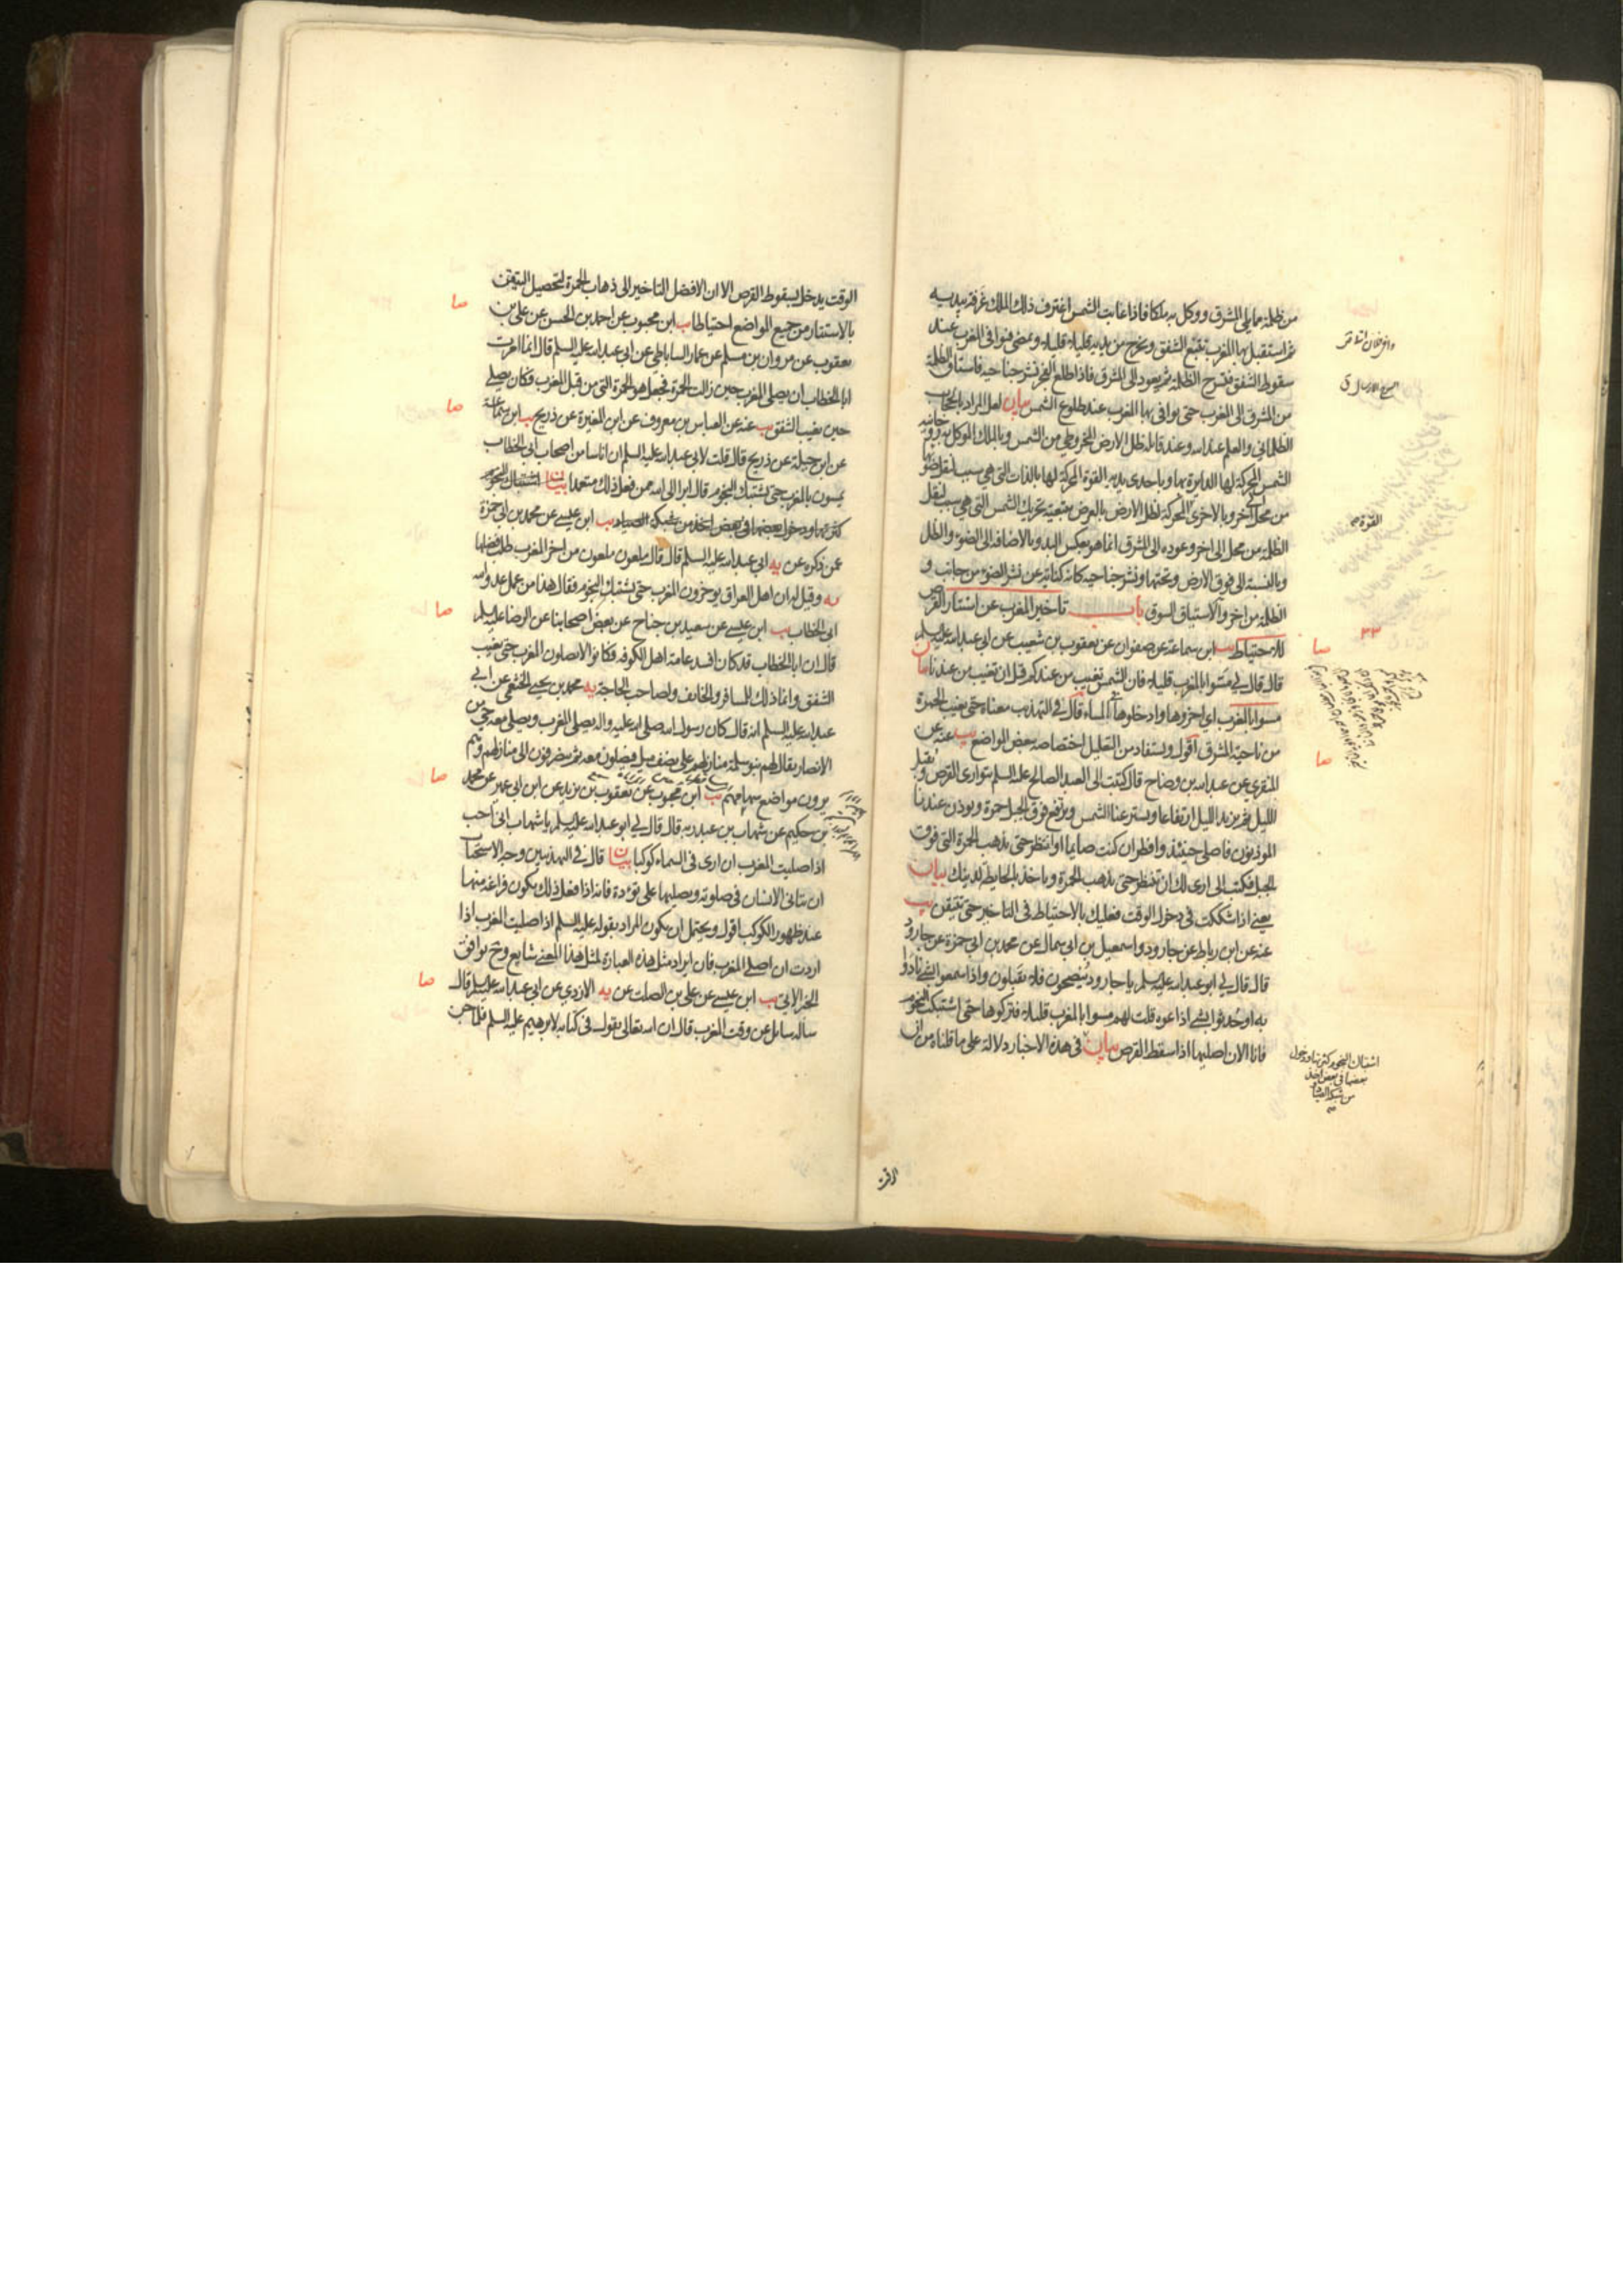 من ظلمة مما يلى المشرق ووكل به ملكا فاذا غابت الشمس اغترف ذلك الملك غرفة بيديه
ثم استقبل بها المغرب تتبع الشفق ويخرج من بين يديه قليلا قليلا ويمضى فيوافى المغرب عند
سقوط الشفق فيسرح الظلمة ثم يعود الى المشرق فاذا طلع الفجر نشر جناحيه فاستاق الظلمة
من المشرق الى المغرب حتى يوافى بها المغرب عند طلوع الشمس بيان لعل المراد بالحجاب
الظلمانى والعلم عند الله وعند قائله ظل الارض المخروطى من الشمس وبالملك الموكل به روحانية
الشمس المحركة لها الدايرة بها وباحدى يديه القوة المحركة لها بالذات التى هى سبب لنقل ضوئها
من محل الى آخر وبالاخرى المحركة لظل الارض بالعرض بتبعية تحريك الشمس التى هى سبب لنقل
الظلمة من محل الى اخر وعوده الى المشرق انما هو بعكس البدو بالاضافة الى الضوء والظل
وبالنسبة الى فوق الارض وتحتها ونشر جناحيه كانه كناية عن نشر الضوء من جانب و
الظلمة من اخر والاستياق السوق باب تأخير المغرب عن استتار القرص
للاحتياط يب ابن سماعة عن صفوان عن يعقوب بن شعيب عن ابى عبد الله عليه السلم
قال قال لى مسوا بالمغرب قليلا فان الشمس تغيب من عندكم قبل ان تغيب من عندنا بيان
مسوا بالمغرب اى اخروها وادخلوها فى المساء قال فى التهذيب معناه حتى تغيب الحمرة
من ناحية المشرق اقول ويستفاد من التعليل اختصاصه ببعض المواضع يب عنه عن
المنقرى عن عبد الله بن وضاح قال كتبت الى العبد الصالح عليه السلم يتوارى القرص ويقبل
الليل ثم يزيد الليل ارتفاعا ويستر عنا الشمس ويرتفع فوق الجبل حمرة ويوذن عندنا
الموذنون فاصلى حينئذ وافطر ان كنت صايما او انتظر حتى يذهب الحمرة التى فوق
الجبل فكتب الى ارى لك ان تنتظر حتى يذهب الحمرة وياخذ بالحايطة لدينك بيان
يعنى اذا شككت فى دخول الوقت فعليك بالاحتياط فى التاخير حتى تتيقن يب
عنه عن ابن رباط عن جارود واسمعيل بن ابى سمال عن محمد بن ابى حمزة عن جارود
قال قال لى ابو عبد الله عليه السلم يا جارود ينصحون فلا يقبلون واذا سمعوا بشئ نادوا
به او حدثوا بشئ اذاعوه قلت لهم مسوا بالمغرب قليلا فتركوها حتى اشتبكت النجوم
فانا الان اصليها اذا سقط القرص بيان فى هذه الاخبار دلالة على ما قلناه من ان
القوة
صا
٣٣
صا
اشتباك النجوم كثرتها ودخول
بعضها فى بعض اخذ
من شبكة الصياد
الوقت
الوقت يدخل بسقوط القرص الا ان الافضل التاخير الى ذهاب الحمرة لتحصيل التيقن
بالاستتار من جميع المواضع احتياطا يب ابن محبوب عن احمد بن الحسن عن على بن
يعقوب عن مروان بن مسلم عن عمار الساباطى عن ابى عبد الله عليه السلم قال انما امرت
ابا الخطاب ان يصلى المغرب حين زالت الحمرة فجعل هو الحمرة التى من قبل المغرب فكان يصلى
حين يغيب الشفق يب عنه عن العباس بن معروف عن ابن المغيرة عن ذريح يب ابن سماعة
عن ابن جبلة عن ذريح قال قلت لابى عبد الله عليه السلم ان اناسا من اصحاب ابى الخطاب
يمسون بالمغرب حتى تشتبك النجوم قال ابرا الى الله ممن فعل ذلك متعمدا بيان اشتباك النجوم
كثرتها ودخول بعضها فى بعض اخذ من شبكة الصياد يب ابن عيسى عن محمد بن ابى حمزة
عمن ذكره عن يه ابى عبد الله عليه السلم قال قال ملعون ملعون من اخر المغرب طلب فضلها
يه وقيل له ان اهل العراق يوخرون المغرب حتى تشتبك النجوم فقال هذا من عمل عدو الله
ابى الخطاب يب ابن عيسى عن سعيد بن جناح عن بعض اصحابنا عن الرضا عليه السلم
قال ان ابا الخطاب قد كان افسد عامة اهل الكوفة فكانوا لا يصلون المغرب حتى يغيب
الشفق وانما ذلك للمسافر والخايف ولصاحب الحاجة يه محمد بن يحيى الخثعمى عن ابى
عبد الله عليه السلم انه قال كان رسول الله صلى الله عليه واله يصلى المغرب ويصلى معه حى من
الانصار يقال لهم بنو سلمة منازلهم على نصف ميل فيصلون معه ثم ينصرفون الى منازلهم وهم
يرون مواضع سهامهم يب ابن محبوب عن يعقوب بن يزيد عن ابن ابى عمير عن محمد
بن حكيم عن شهاب بن عبد ربه قال قال لى ابو عبد الله عليه السلم يا شهاب انى احب
اذا صليت المغرب ان ارى فى السماء كوكبا بيان قال فى التهذيبين وجه الاستحباب
ان يتانى الانسان فى صلوته ويصليها على تؤدة فانه اذا فعل ذلك يكون فراغه منها
عند ظهور الكوكب اقول ويحتمل ان يكون المراد بقوله عليه السلم اذا صليت المغرب اذا
اردت ان اصلى المغرب فان ايراد مثل هذه العبارة لمثل هذا المعنى شايع وح يوافق
الخبر الاتى يب ابن عيسى عن على بن الصلت عن يه الازدى عن ابى عبد الله عليه السلم قال
ساله سايل عن وقت المغرب قال ان الله تعالى يقول فى كتابه لابرهيم عليه السلم فلما جن
صا
صا
صا
صا
صا